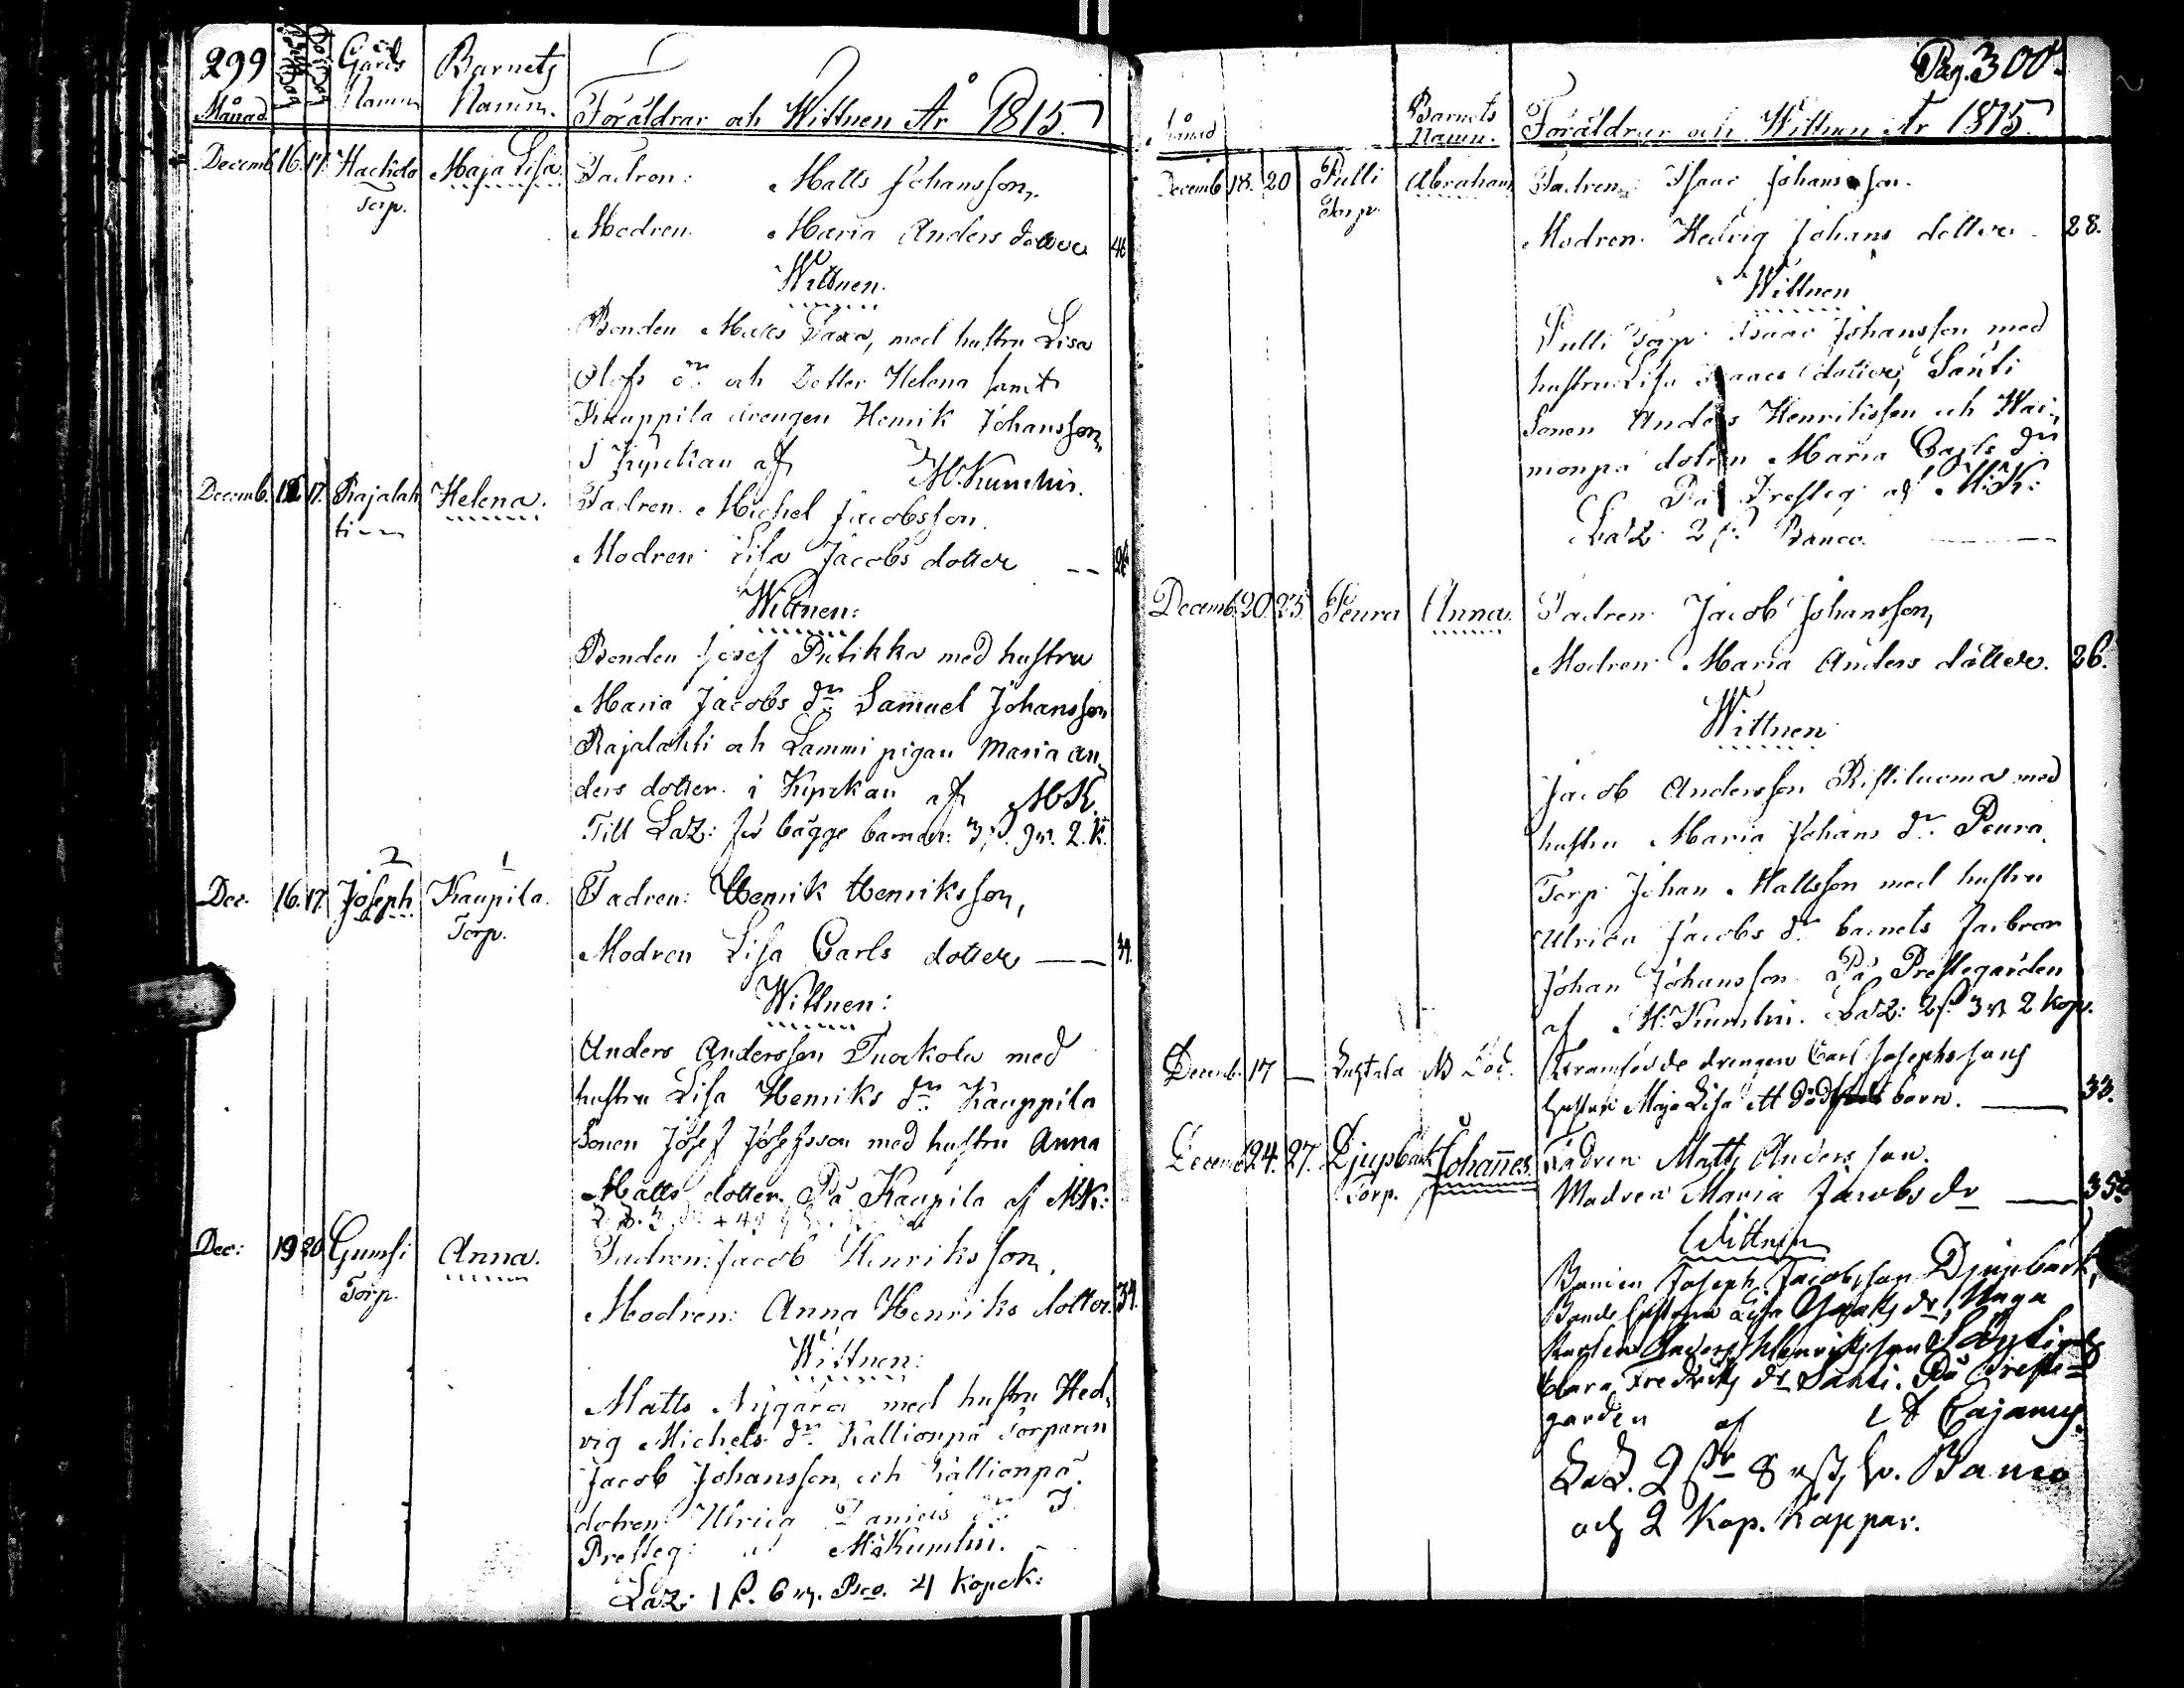 299
Månad
Gårds
Namn
Barnets
Namn.
Föräldrar och Wittnen År 1815.
Decemb. 16. 17. Maja Lisa. Fadren: Matts Johansson,
Torp.
Modren Maria Anders dotter
Wittnen.
Bonden Matts, med hustru Lisa
Olofs dr. och Dotter Helena samt
Kauppila drengen Henrik Johansson,
I Kyrckan af M. Kumlin.
Decemb. 17. Rajalah Helena. Fadren. Michel Jacobsson.
ti
Modren Lisa Jacobs dotter
Wittnen:
Bonden Josef Putikka med hustru
Maria Jacobs dr. Samuel Johansson
Rajalahti och Lammi pigan Maria An
ders dotter. i Kyrckan af MK.
Till Laz: för bägge barnen: 3 2. k.
2 1
Dec. 16. 17. Joseph Kaupila. Fadren: Henrik Henriksson,
Torp.
Modren Lisa Carls dotter 34.
Wittnen:
Anders Andersson Tuorkola med
hustru Lisa Henriks dr. Kauppila
Sonen Josef Josefsson med hustru Anna
Matts dotter. På Kaupila af MK:
Dec: 19 20 Gumsi Anna. Fadren: Jacob Henriksson,
Torp.
Modren: Anna Henriks dotter. 34.
Wittnen:
Matts Nygård med hustru Hed,
vig Michels dr. Kallionpä Torparen
Jacob Johansson och Kallionpä
dotren Ulrica Daniels dr. I
Presteg: af M: Kumlin.
Laz: 1 ß. 6 r. Bco. 4 Kopek:
Pag. 300.
Månad
Barnets
Namn.
Föräldrar och Wittnen År 1815.
Decemb. 18. 20 Pulli Abraham Fadren Isaac Johansson.
Torp.
Modren. Hedvig Johans dotter 28.
Wittnen
Pulli Torp. Isaac Johansson med
hustru Lisa Isaacs dotter, Santi
Sonen Anders Henriksson och Wai,
nionpä dotren Maria Carls dr.
På Presteg af M:K:
Laz: 2 ß. Banco.
Decemb. 20. 25. Peura Anna. Fadren Jacob Johansson,
Modren Maria Anders dotter. 26.
Wittnen
Jacob Andersson Ristiluoma med
hustru Maria Johans dr. Peura.
Torp. Johan Mattsson med hustru
Ulrica Jacobs dr. barnets farbror
Johan Johansson. På Prestegården
af M: Kumlin. Laz: 2 ß. 3 r. 2 kop.
Decemb. 17 — Framfödde drengen Carl Josephssons
hustru Maja Lisa ett död barn. 33.
Decemb. 24. 27. Djupback Johannes Fadren Matts Andersson.
Torp.
Modren Maria Jacobs dr 35
Wittnen
Bonden Joseph Jacobsson Djupback,
Bonde hustrun Lisa dr, Unga
Karlen Anders Henriksson
Clara Fredriks dr Santi. På Preste=
gården af Cajanus.
LaZ. 2 ß 8 r. Banco
och 2 Kop. Koppar.